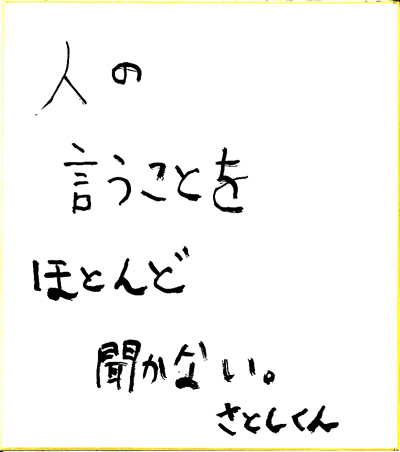 人の
言うことを
ほとんど
聞かない。
さとしくん